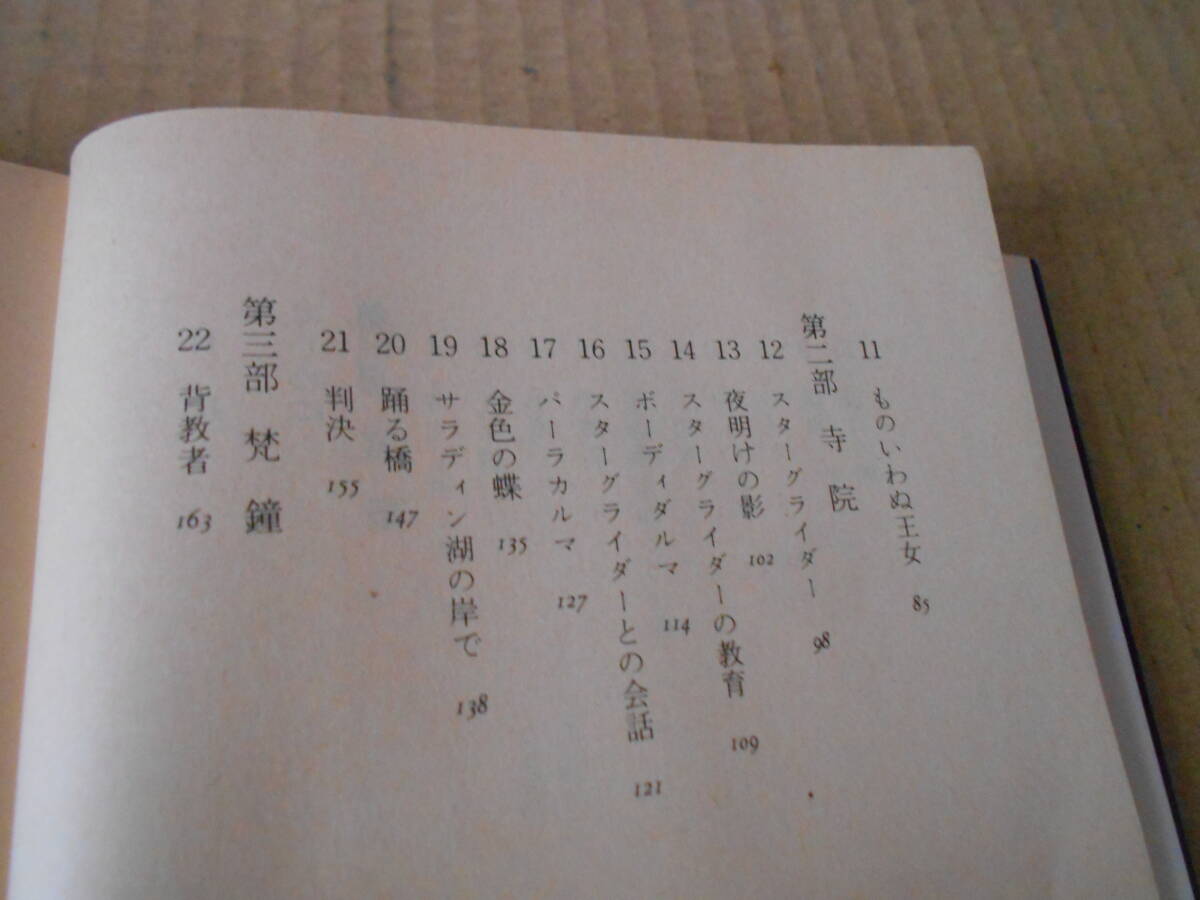 11 ものいわぬ王女 85
第二部 寺院
12 スターグライダー 98
13 夜明けの影 102
14 スターグライダーの教育 109
15 ボーディダルマ 114
16 スターグライダーとの会話 121
17 パーラカルマ 127
18 金色の蝶 135
19 サラディン湖の岸で 138
20 踊る橋 147
21 判決 155
第三部 梵鐘
22 背教者 163